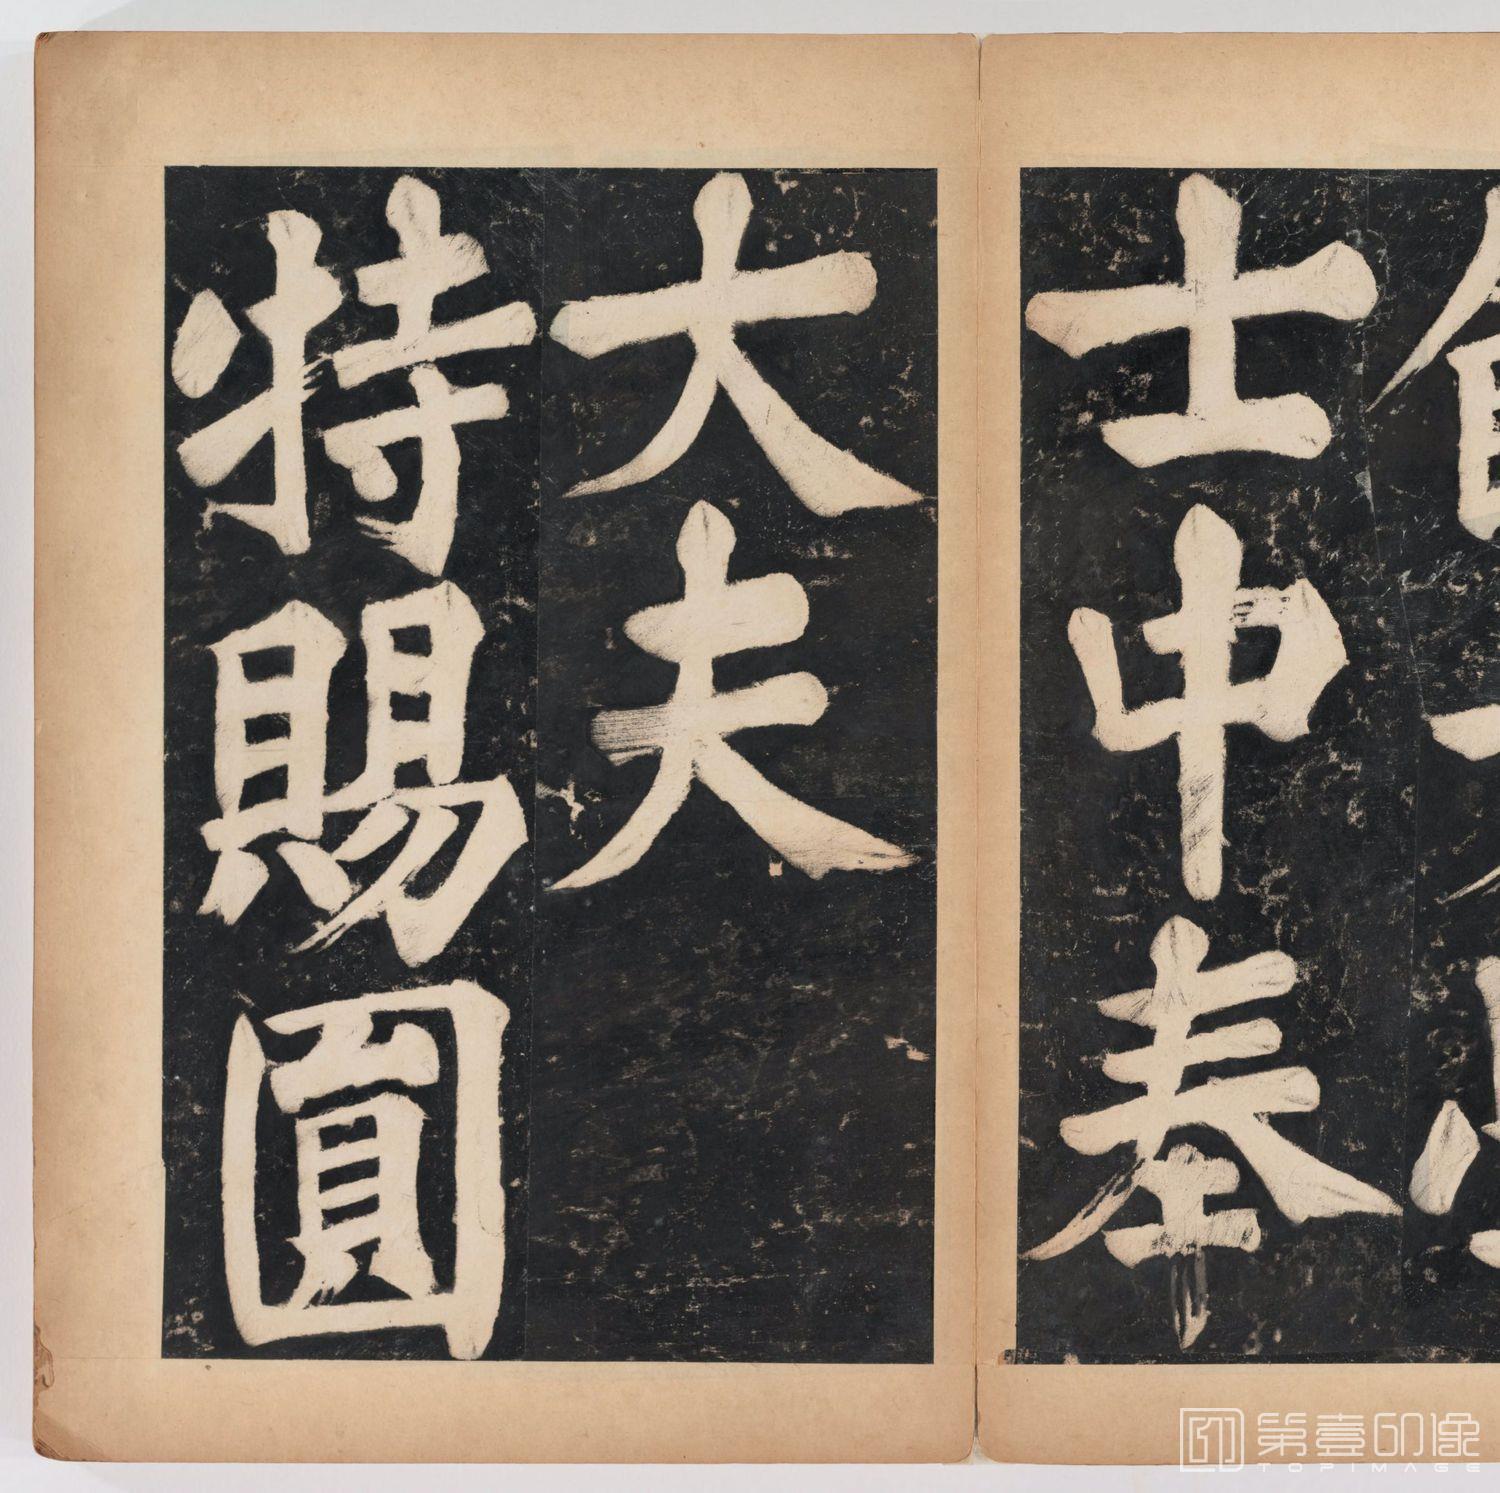 士中奉
大夫
特賜圓
第壹印像
TOPIMAGE